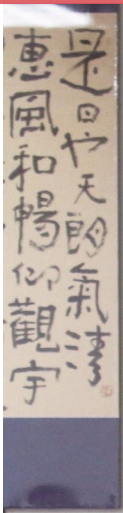 是日也天朗氣清
惠風和暢仰觀宇